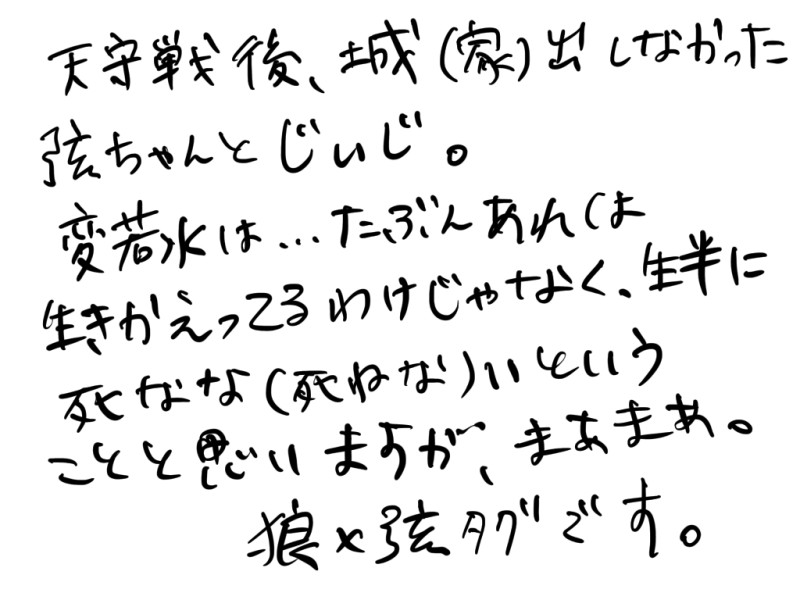 天守戦後、城(家)出しなかった
弦ちゃんとじぃじ。
変若水は…たぶんあれは
生きかえってるわけじゃなく、生半に
死なな(死ねな)いという
ことと思いますが、まあまあ。
狼×弦タグです。